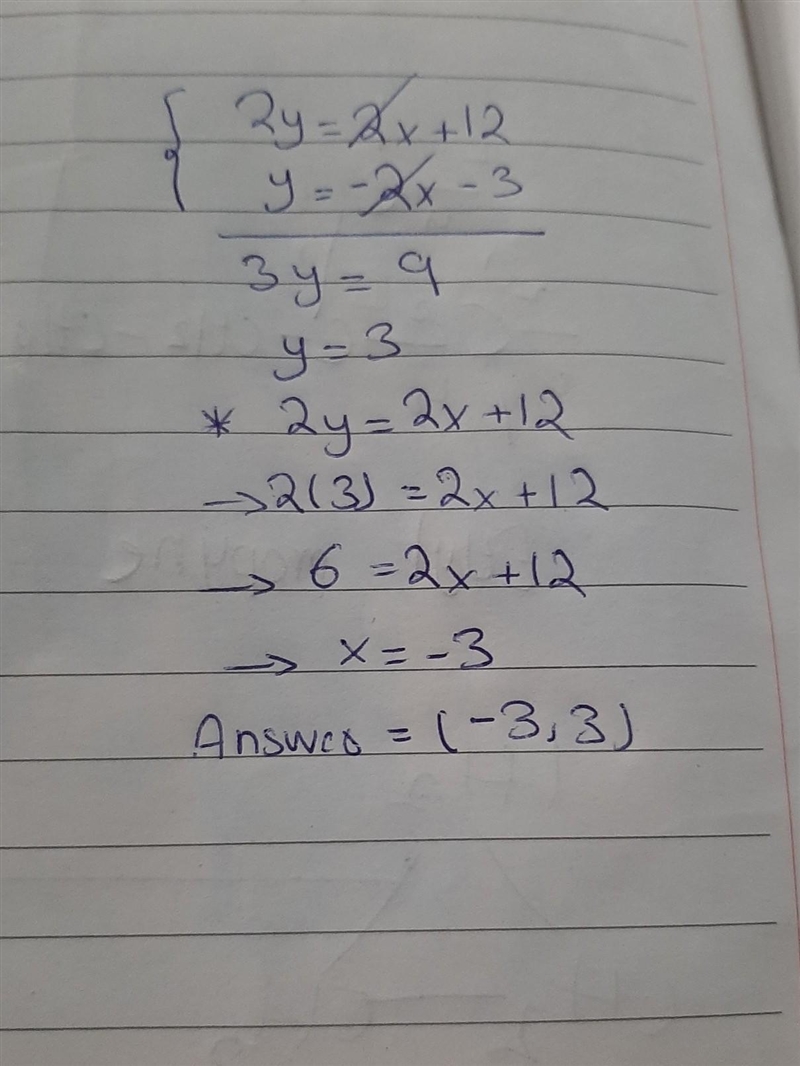 2y = 2x + 12
y = -2x - 3
3y = 9
y = 3
* 2y = 2x + 12
→ 2(3) = 2x + 12
→ 6 = 2x + 12
→ x = -3
Answer = (-3, 3)